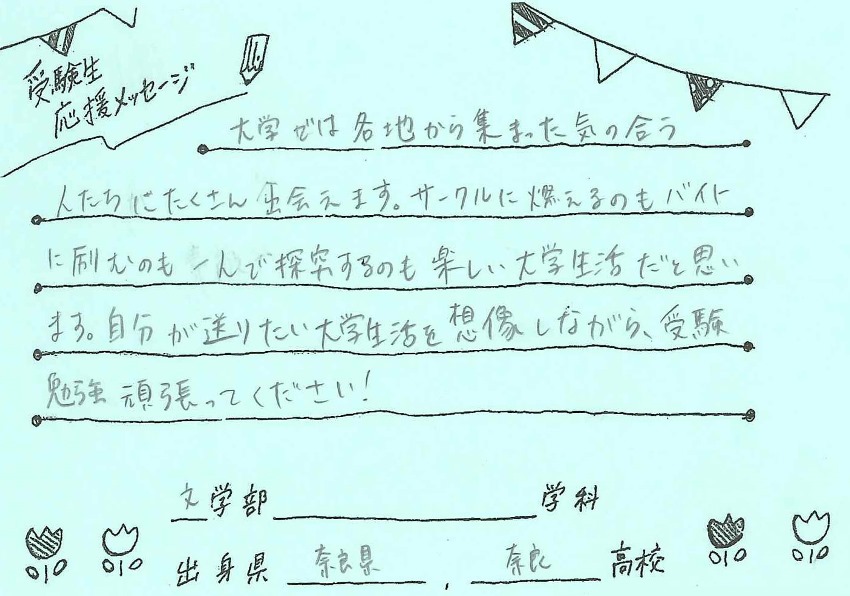 受験生
応援メッセージ
大学では各地から集まった気の合う
人たちにたくさん出会えます。サークルに燃えるのもバイト
に励むのも一人で探究するのも楽しい大学生活だと思い
ます。自分が送りたい大学生活を想像しながら、受験
勉強頑張ってください！
文学部 学科
出身県 奈良県 , 奈良 高校